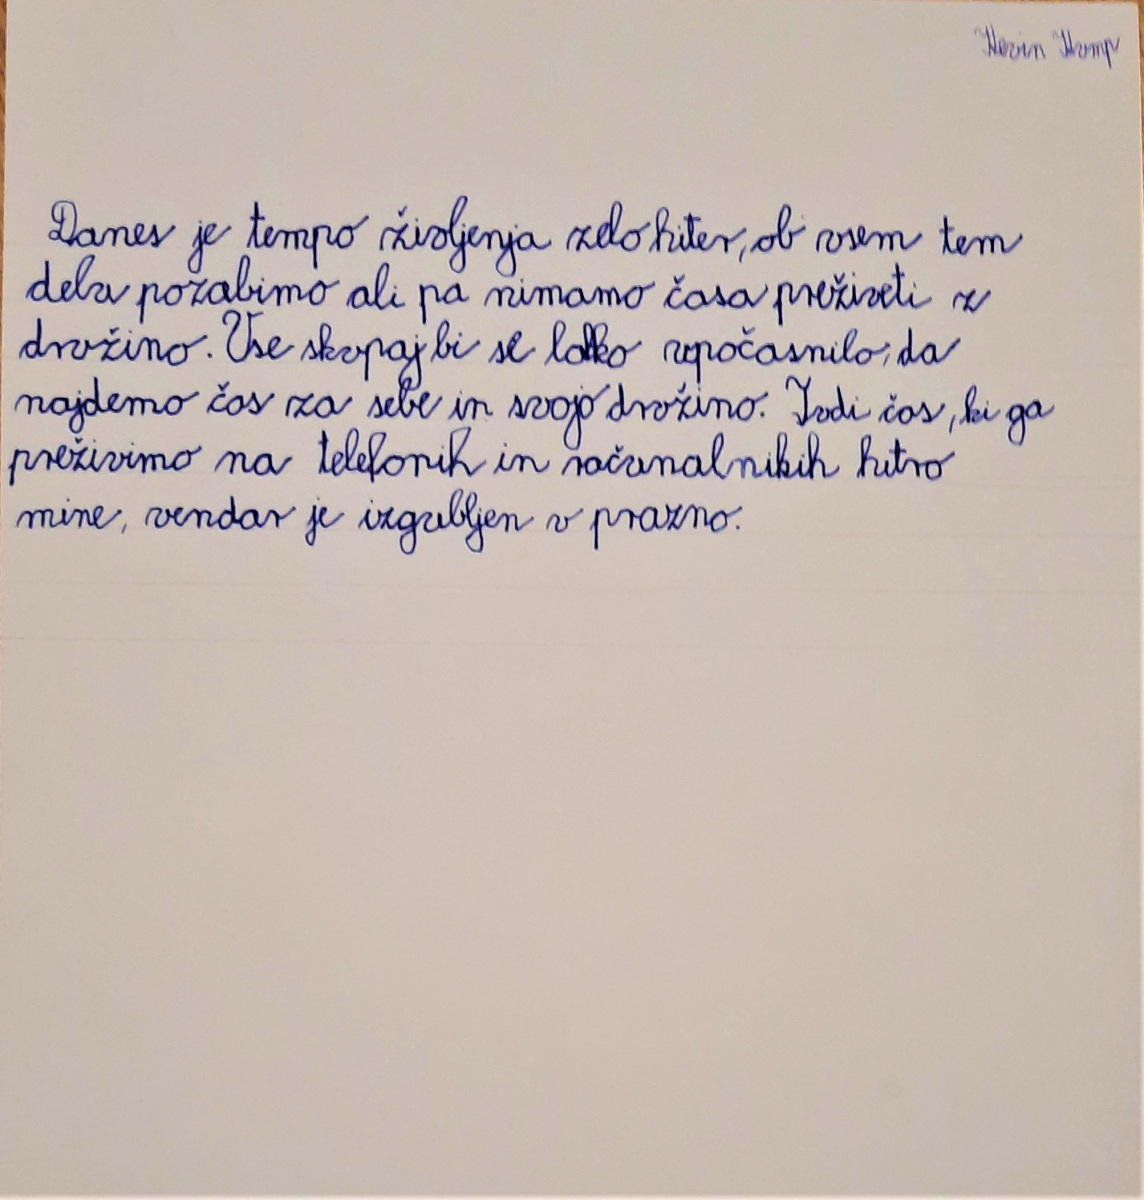 Kevin Kump
Danes je tempo življenja zelo hiter, ob vsem tem
delu pozabimo ali pa nimamo časa preživeti z
družino. Vse skupaj bi se lahko upočasnilo, da
najdemo čas za sebe in svojo družino. Tudi čas, ki ga
preživimo na telefonih in računalnikih hitro
mine, vendar je izgubljen v prazno.